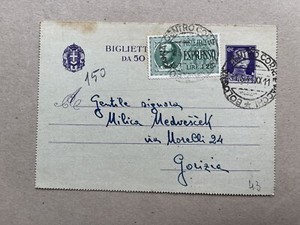 BIGLIETT
DA 50
ESPRESSO
LIRE 1,25
150
A Gentile signora
Milica Medvešček
via Morelli 24
Gorizia
43